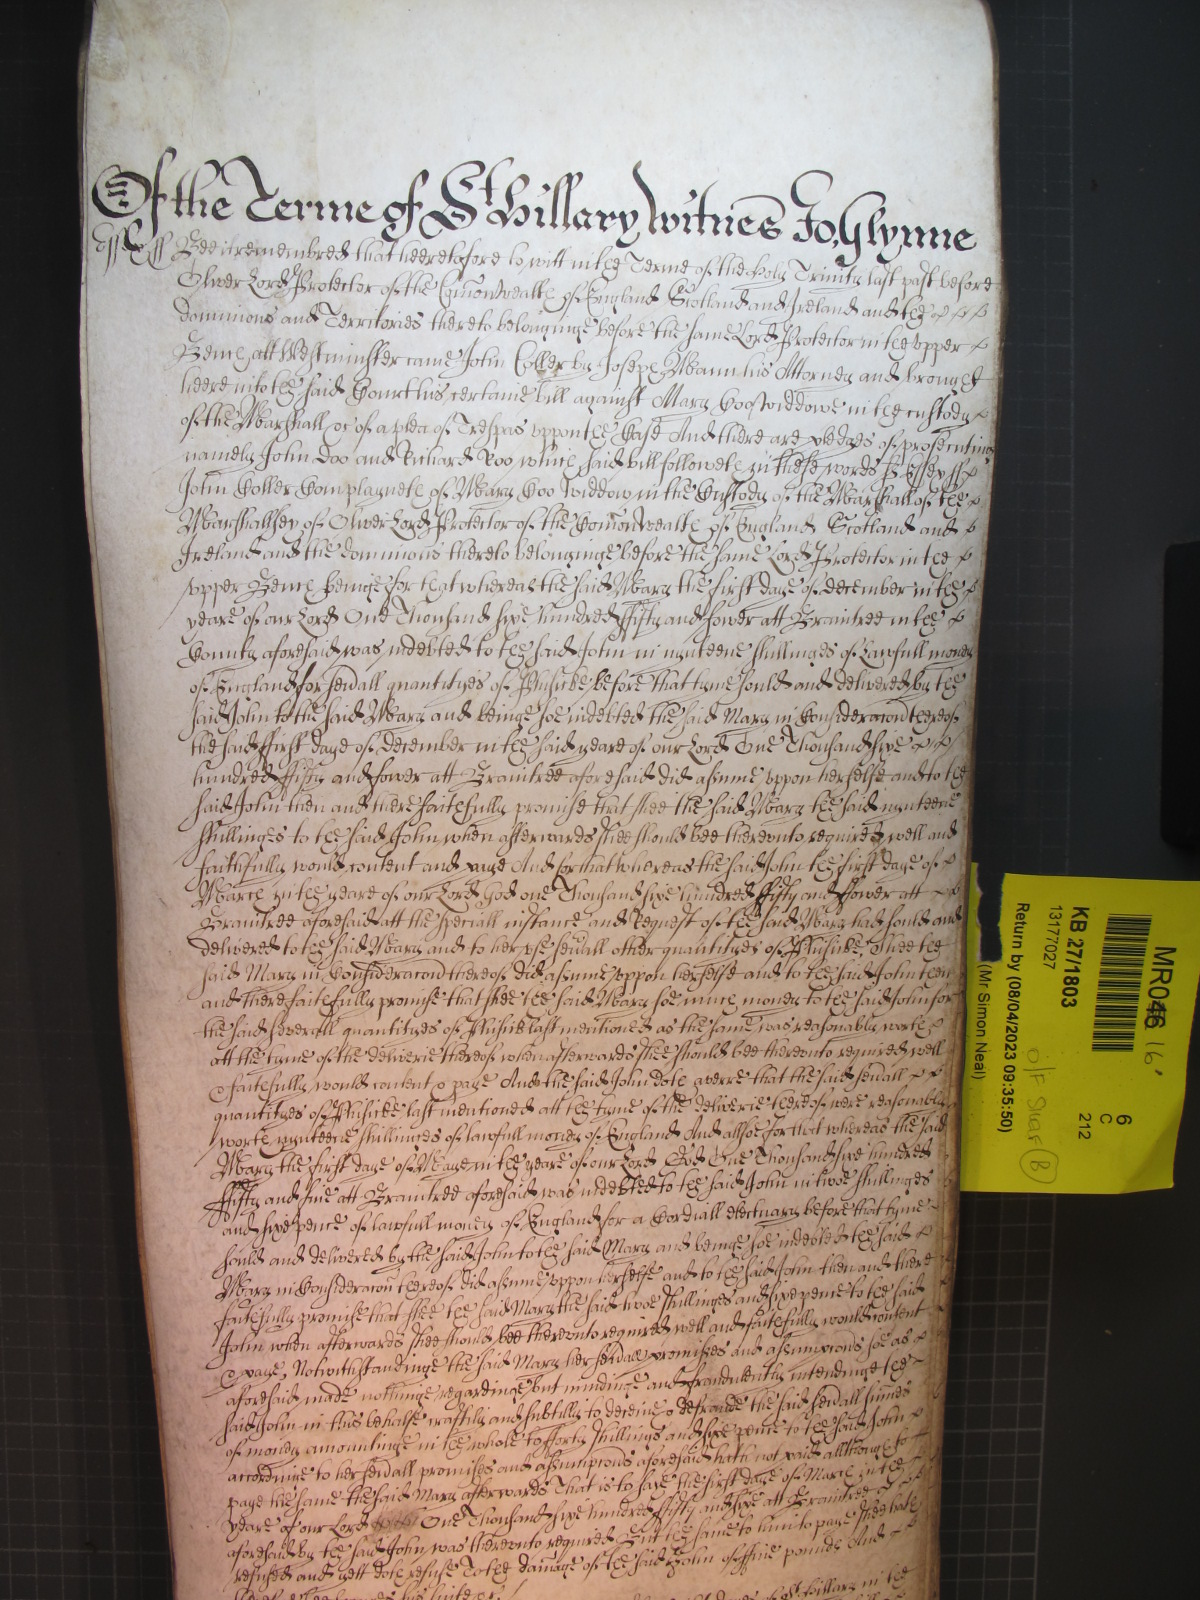 Of the Terme of St Hillary Witnes Jo. Glynne
Essex ss Bee it remembred that heeretofore to witt in the Terme of the holy Trinity last past before
Oliver Lord Protector of the Comonwealth of England Scotland and Ireland and the
dominions and Territories thereto belonginge before the same Lord Protector in the vpper
Bench att Westminster came John Coller by Joseph Mann his Attorney and brought
heere into the said Court his certaine bill against Mary Coo widdowe in the custody
of the Marshall &c of a plea of Trespas vppon the Case And there are pledges of prosecuting
namely John Doo and Richard Roo which said bill followeth in these words ss Essex ss
John Coller Complayneth of Mary Coo widdow in the Custody of the Marshall of the
Marshallsey of Oliver Lord Protector of the Comonwealth of England Scotland and
Ireland and the dominions thereto belonginge before the same Lord Protector in the
vpper Bench beinge for that whereas the said Mary the first daye of december in the
yeare of our Lord One Thousand sixe hundred ffifty and fower att Braintree in the
County aforesaid was indebted to the said John in nynteene shillinges of Lawfull money
of England for seuall quantityes of Phisicke before that tyme sould and delivered by the
said John to the said Mary and beinge soe indebted the said Mary in Consideracon thereof
the said ffirst daye of december in the said yeare of our Lord One Thousand sixe
hundred ffifty and fower att Braintree aforesaid did assume vppon herselfe and to the
said John then and there faithfully promise that shee the said Mary the said nynteene
shillinges to the said John when afterwards shee should bee therevnto required well and
faithfully would content and paye And for that whereas the said John the first daye of
March in the yeare of our Lord God one Thousand sixe hundred ffifty and ffower att
Braintree aforesaid att the speciall instance and request of the said Mary had sould and
delivered to the said Mary and to her vse seuall other quantityes of Phisicke, Shee the
said Mary in Consideracon thereof did assume vppon herselfe and to the said John then
and there faithfully promise that shee the said Mary soe much money to the said John for
the said severall quantityes of Phisick last mentioned as the same was reasonably worth
att the tyme of the deliverie thereof when afterwards shee should bee therevnto required well
& faithfully would content & paye And the said John doth averre that the said seuall
quantityes of Phisicke last mentioned att the tyme of the deliverie thereof were reasonably
worth nynteene shillinges of lawfull money of England And allsoe for that whereas the said
Mary the first daye of Maye in the yeare of our Lord God One Thousand sixe hundred
ffifty and five att Braintree aforesaid was indebted to the said John in twoe shillinges
and sixe pence of lawfull money of England for a Cordiall electuary before that tyme
sould and delivered by the said John to the said Mary and beinge soe indebted the said
Mary in Consideracon thereof did assume vppon herselfe and to the said John then and there
faithfully promise that shee the said Mary the said twoe shillinges and sixe pence to the said
John when afterwards shee should bee therevnto required well and faithfully would content
& paye, Notwithstandinge the said Mary her seuall promises and assumpcons soe as
aforesaid made nothinge regardinge but mindinge and fraudulently intendinge the
said John in this behalfe craftily and subtilly to deceive & defraude the said seuall summes
of money amountinge in the whole to fforty shillings and sixe pence to the said John
accordinge to her seuall promises and assumpcons aforesaid hath not paid allthough to
paye the same the said Mary afterwards That is to saye the first daye of March in the
yeare of our Lord One Thousand sixe hundred ffifty and sixe att Braintree
aforesaid by the said John was therevnto required But the same to him to paye shee hath
refused and yett doth refuse To the damage of the said John of ffive pounds And
MR046 16'
6
C
212
KB 27/1803
13177027
Return by (08/04/2023 09:35:50)
(Mr Simon Neal)
B